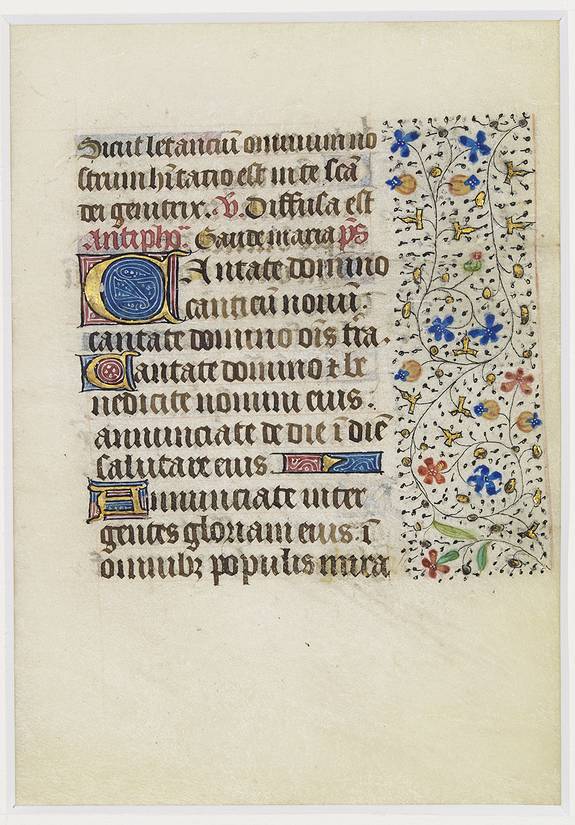 Sicut letanciū omnium no
strum h̄itacio est in te scā
dei genitrix. V. Diffusa est
Antipho. Gaude maria p̄s
Cantate domino
canticū nouū:
cantate domino ōis t̄ra.
Cantate domino ⁊ be
nedicite nomini eius:
annunciate de die ī diē
salutare eius
Annunciate inter
gentes gloriam eius: ī
omnibꝫ populis mira